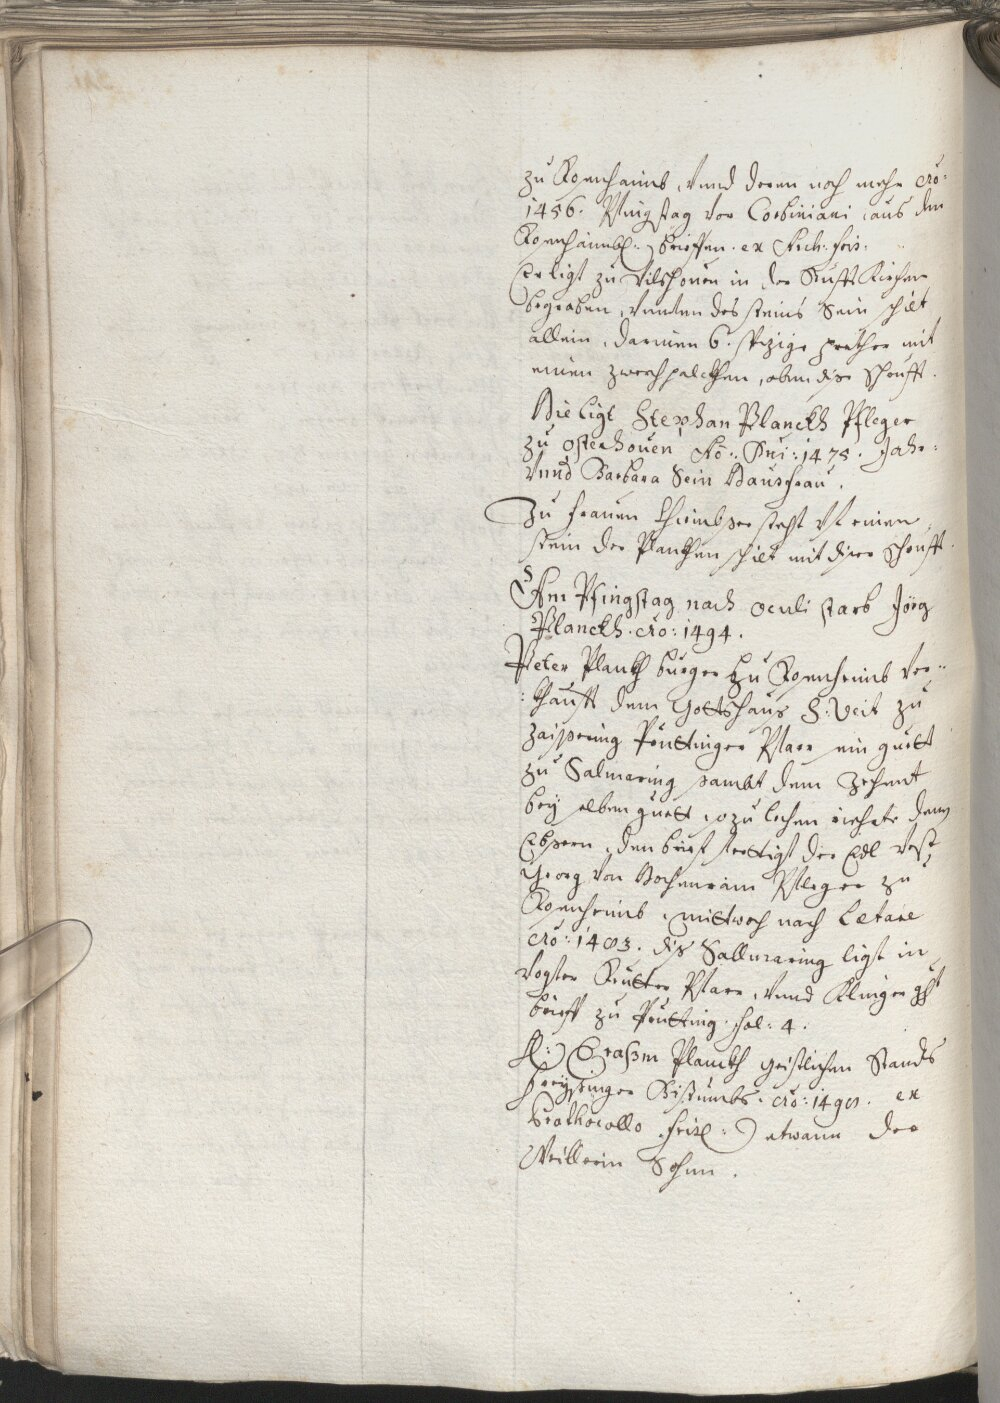 zu Rosenhaimb, vnnd deren noch mehr Aõ:
1456. Pfingstag vor Corbiniani, aus den
Rosenhaimbs: brieffen. ex Arch: fris:
Er ligt zu Vilshouen in der Stifft Kirchen
begraben, vnnten des steins Sein schilt
allein, darinen 6. spizige
einen zwerchpalckhen, oben dise schrifft.
Hie ligt Stephan Planckh Pfleger
zu Osterhouen Aõ: Dni: 1475. Jahr:
vnnd Barbara Sein Hausfrau.
Zu frauen steht vf einen
stein der Planckhen schilt mit diser schrifft.
Am Pfingstag nach Oculi starb Jörg
Planckh. Aõ: 1494.
Peter Planckh burger zu Rosenheimb ver:
:khaufft dem Gottshaus S: Veit zu
Zaissering Pruttinger Pfarr ein guett
zu Salmaring sambt dem Zehent
bey selben guett, so zu lechen riehrte denen
Ebsern, den brief ferttigt der Edl vest
Georg von Hochenrain Pfleger zu
Rosenheimb, mittwoch nach Lætare
Aõ: 1483. dis Sallmaring ligt in
Vogter Pfarr, vnnd Klinger
brieff zu Prutting. fol: 4.
H:) Eraßm Planckh geistlichen Stands
freysinger Bistumbs. Aõ: 1490. ex
Prothocollo fris:) etwann der
Weillerin Sohnn.